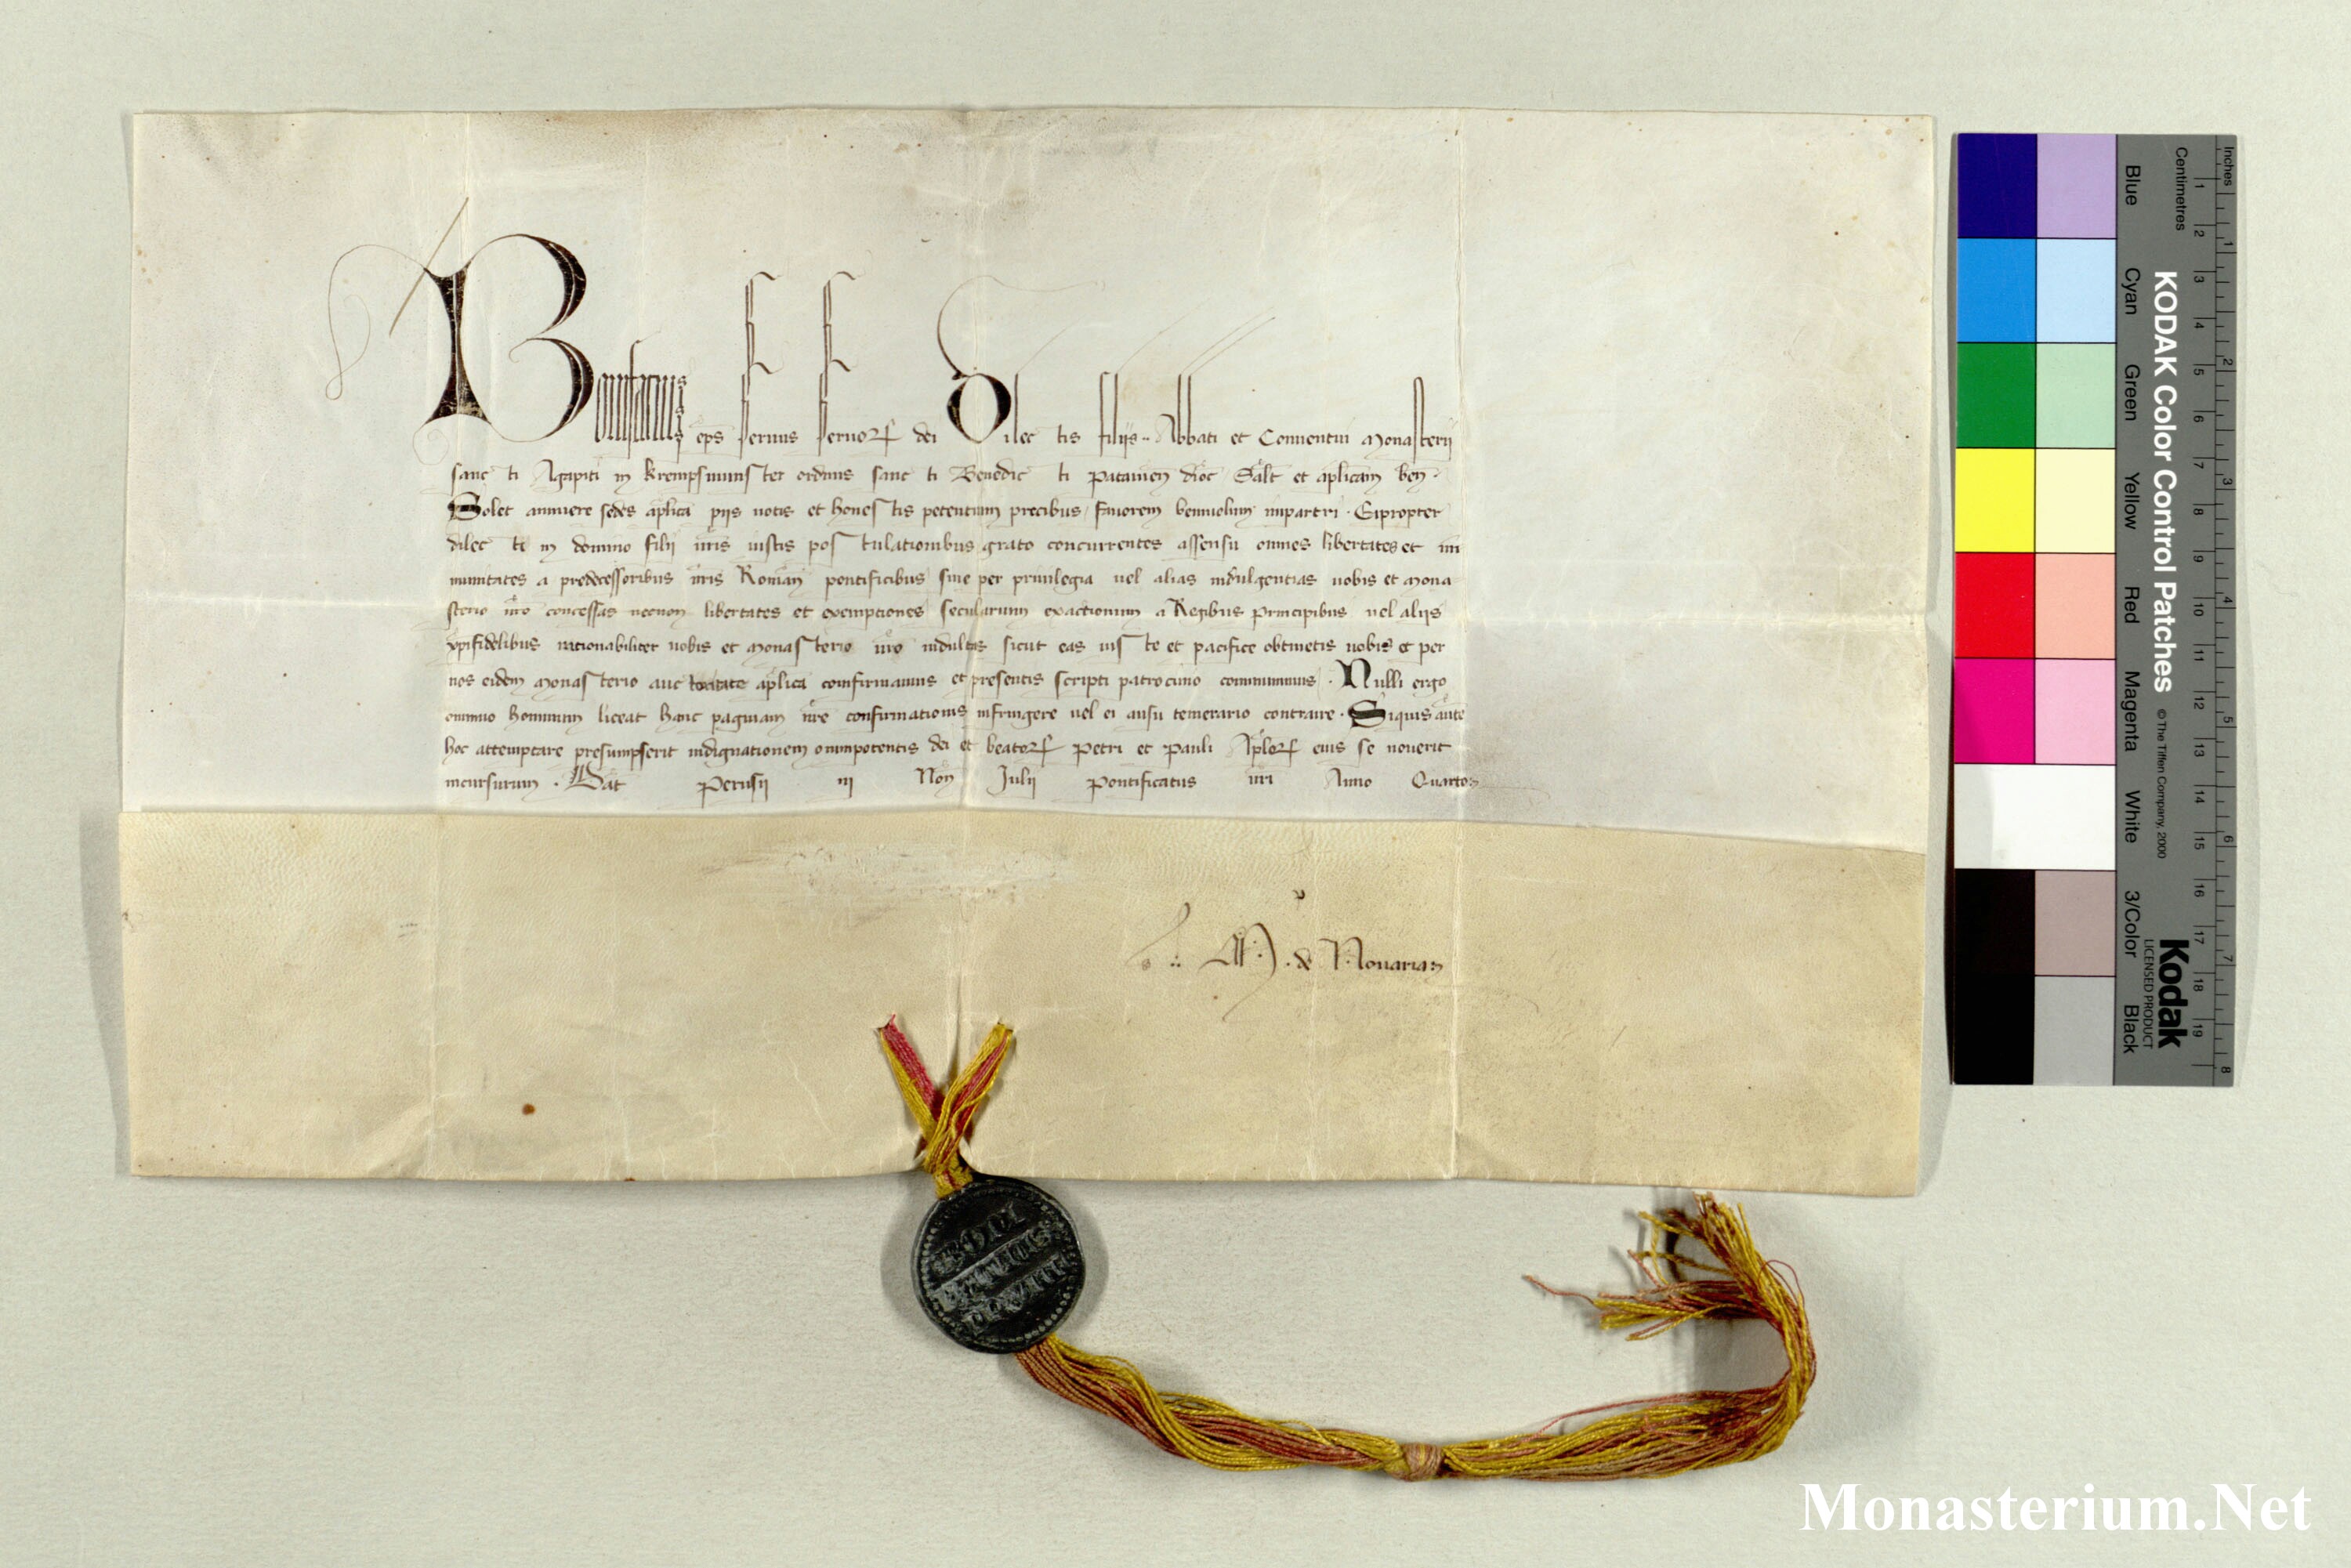 Bonifacius ep̄s seruus seruoꝝ dei Dilectis filiis .. Abbati et Conuentui Monasterij
sancti Agapiti in Krempsmunster ordinis sancti Benedicti Patauien̄ dioc̄ Sal̄t et apl̄icam ben̄ .
Solet annuere sedes apl̄ica piis uotis et honestis petentium precibus fauorem beniuolum impartiri . Eapropter
dilecti in domino filij ur̄is iustis postulationibus grato concurrentes assensu omnes libertates et im
munitates a predecessoribus nr̄is Roman̄ pontificibus siue per priuilegia uel alias indulgentias uobis et Mona
sterio ur̄o concessas necnon libertates et exemptiones secularium exactionum a Regibus Principibus uel alijs
xp̄ifidelibus rationabiliter uobis et Monasterio ur̄o indultas sicut eas iuste et pacifice obtinetis uobis et per
uos eidem Monasterio auctoritate apl̄ica confirmamus et presentis scripti patrocinio communimus . Nulli ergo
omnino hominum liceat hanc paginam nr̄e confirmationis infringere uel ei ausu temerario contraire . Siquis aūte
hoc attemptare presumpserit indignationem omnipotentis dei et beatoꝝ Petri et Pauli Apl̄oꝝ eius se nouerit
incursurum . Dat̄ Perusij iij Noñ Julij Pontificatus nr̄i Anno Quarto
de Nouaria
BONI
FATIUS
PP VIIII
KODAK Color Control Patches
© The Tiffen Company, 2000
Kodak
LICENSED PRODUCT
Inches
1 2 3 4 5 6 7 8
Centimetres
1 2 3 4 5 6 7 8 9 10 11 12 13 14 15 16 17 18 19
Blue
Cyan
Green
Yellow
Red
Magenta
White
3/Color
Black
Monasterium.Net